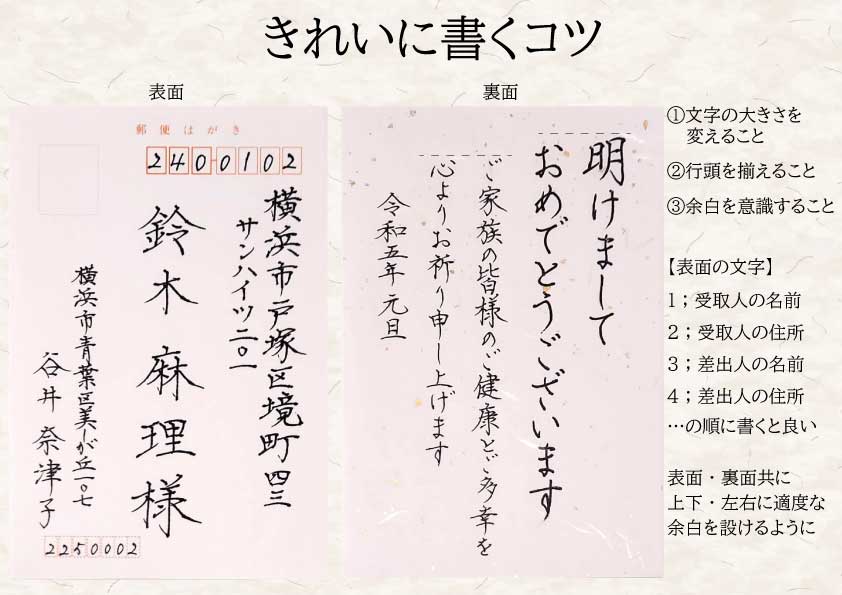 きれいに書くコツ
表面
郵便はがき
2400102
横浜市戸塚区境町四三
サンハイツ二〇一
鈴木麻理様
横浜市青葉区美しが丘一〇七
谷井奈津子
2250002
裏面
明けまして
おめでとうございます
ご家族の皆様のご健康とご多幸を
心よりお祈り申し上げます
令和五年元旦
①文字の大きさを
変えること
②行頭を揃えること
③余白を意識すること
【表面の文字】
1；受取人の名前
2；受取人の住所
3；差出人の名前
4；差出人の住所
…の順に書くと良い
表面・裏面共に
上下・左右に適度な
余白を設けるように